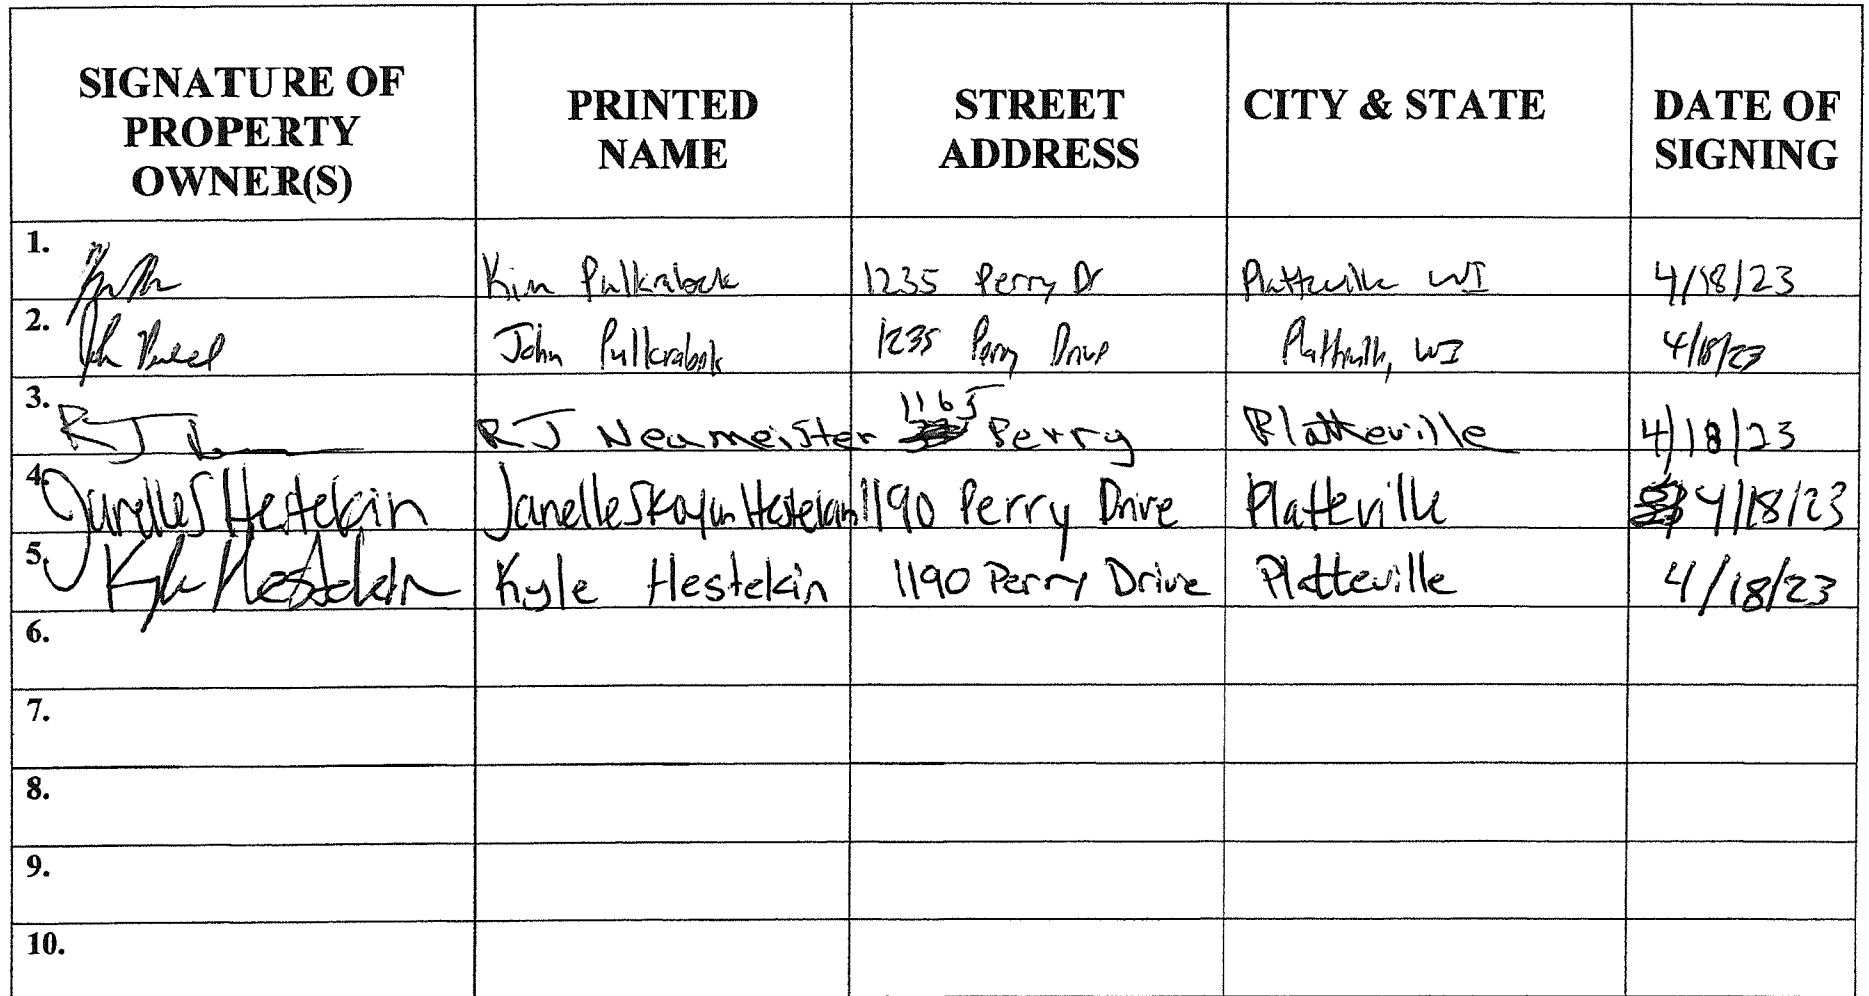 SIGNATURE OF PROPERTY OWNER(S) PRINTED NAME STREET ADDRESS CITY & STATE DATE OF SIGNING
1. Kim Pulkrabek 1235 Perry Dr Platteville WI 4/18/23
2. John Pulkrabek 1235 Perry Drive Platteville, WI 4/18/23
3. RJ RJ Neumeister 1165 Perry Platteville 4/18/23
4. Janelle S Hestekin Janelle Skoyen Hestekin 1190 Perry Drive Platteville 4/18/23
5. Kyle Hestekin Kyle Hestekin 1190 Perry Drive Platteville 4/18/23
6.
7.
8.
9.
10.